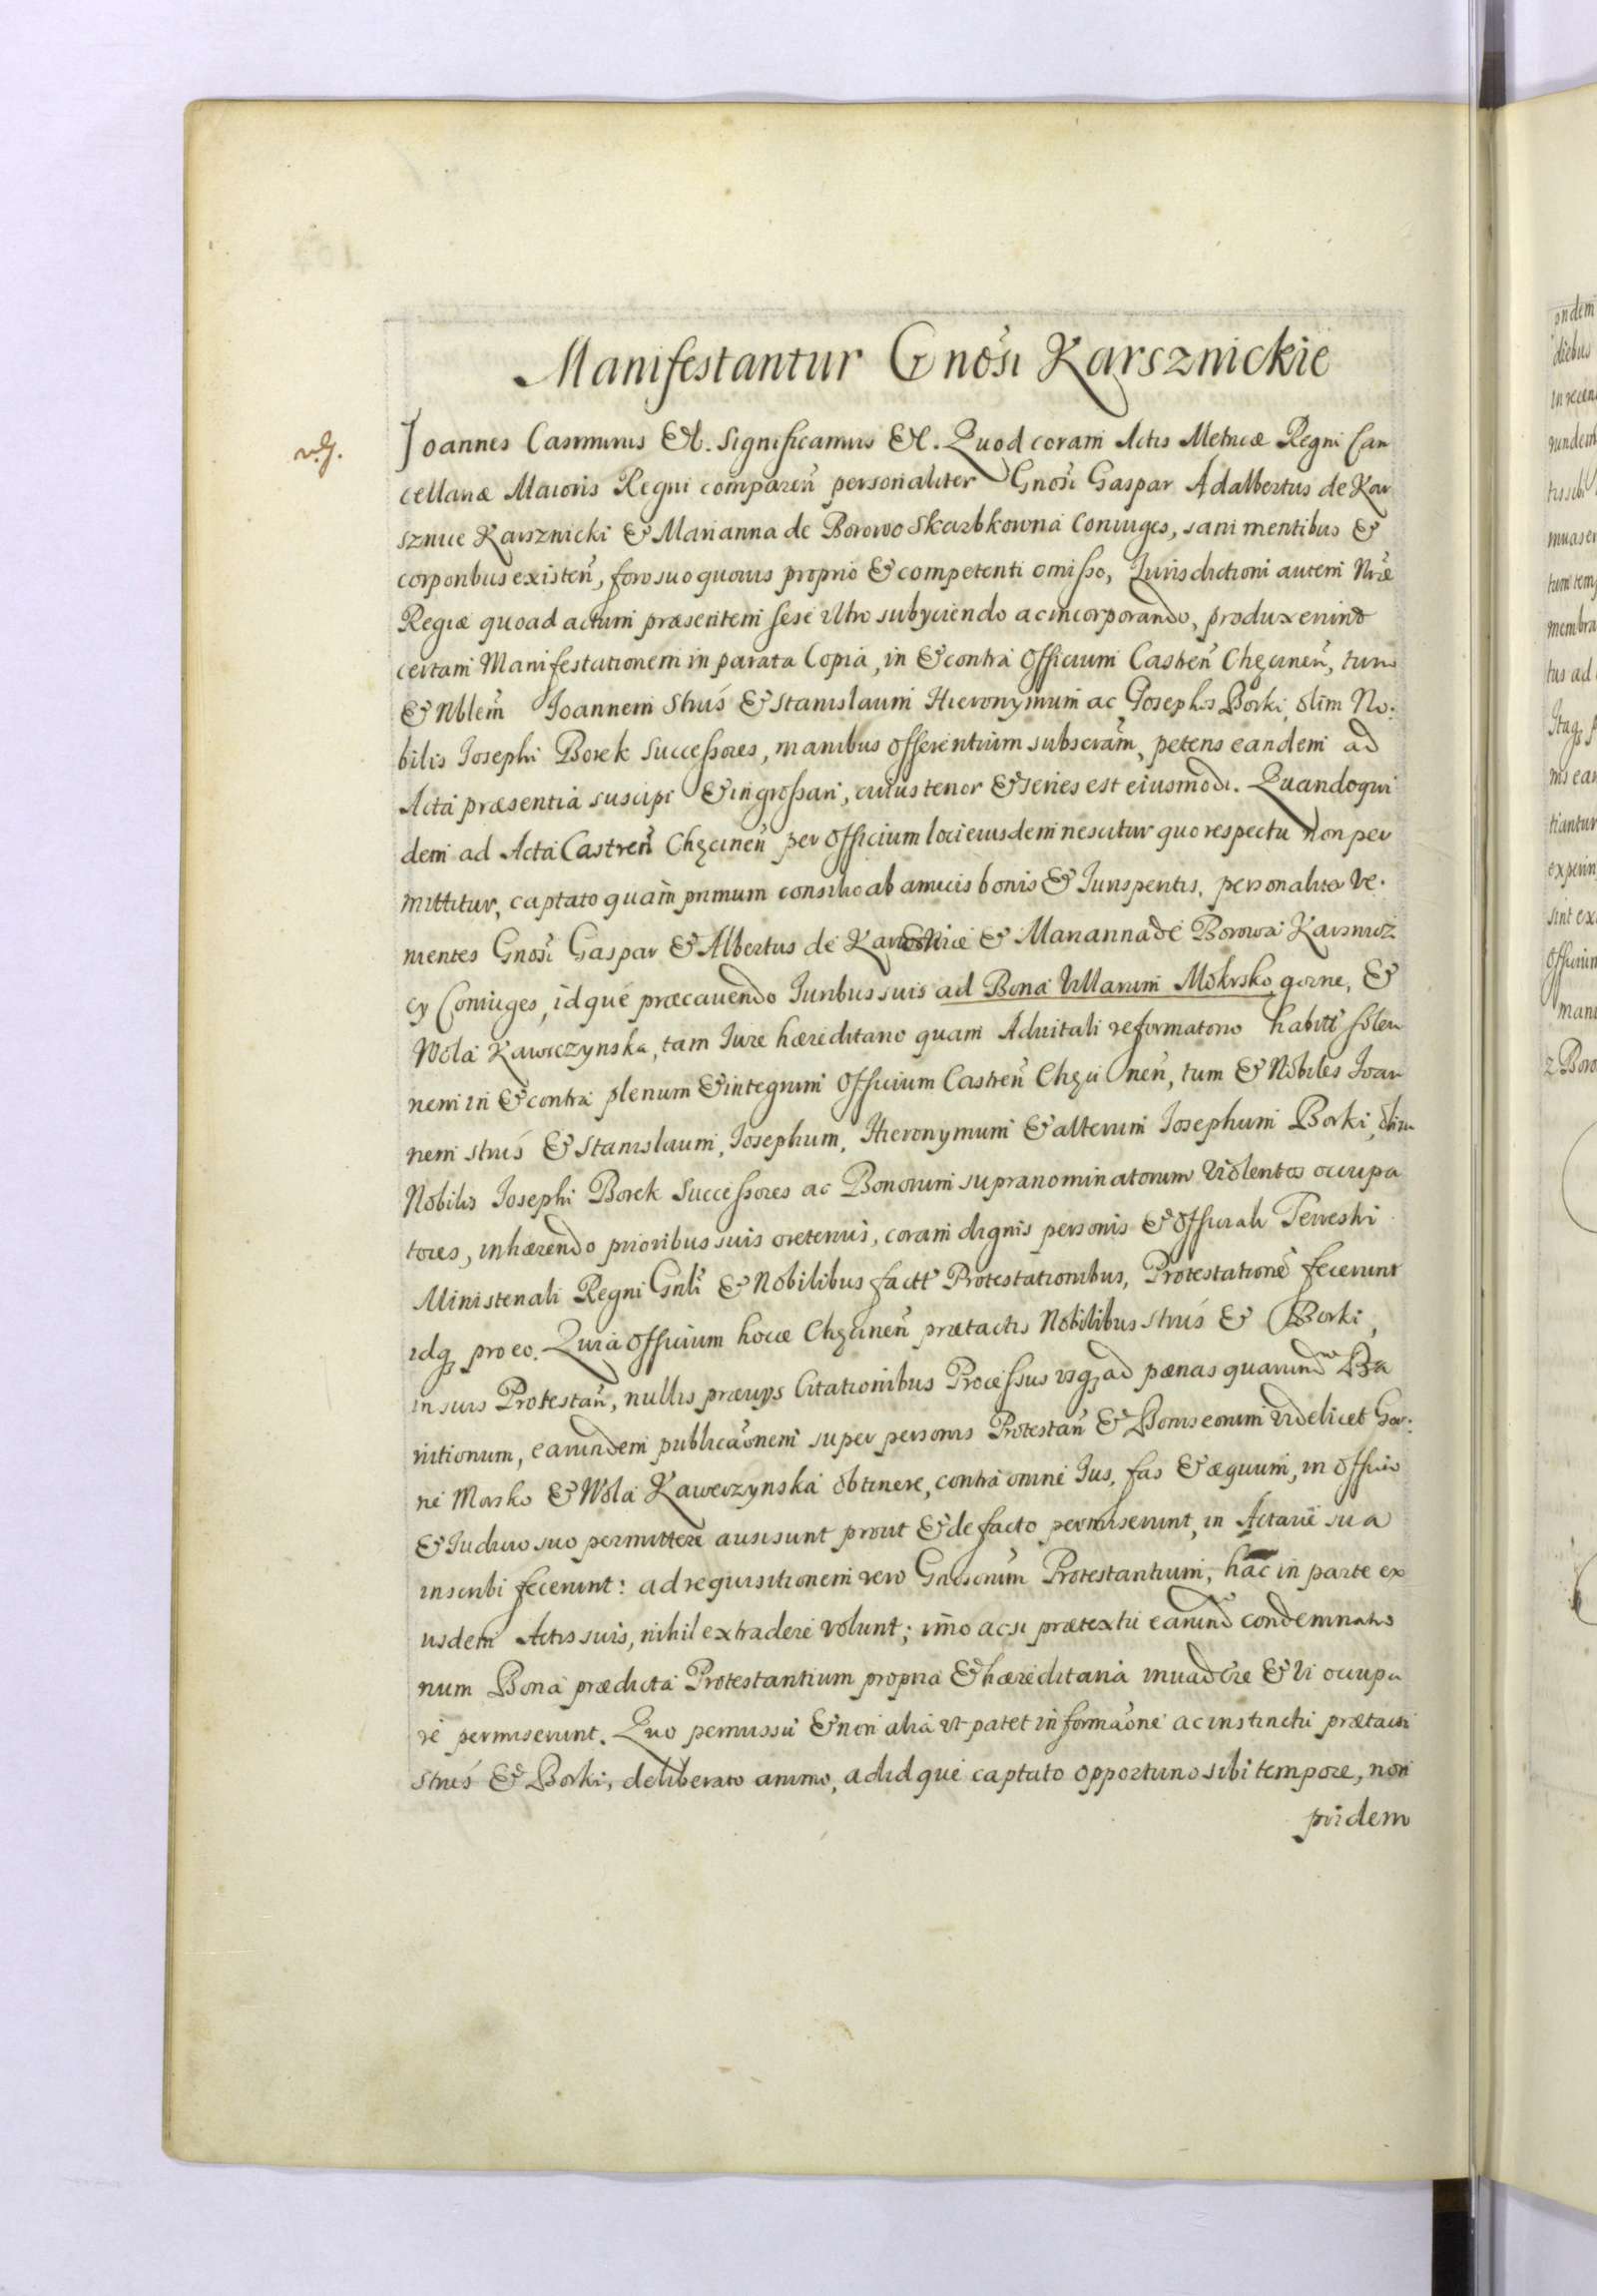 Manifestantur Gnosi Karsznickie
Ioannes Casimirus &c. Significamus &c. Quod coram Actis Metricæ Regni Can
cellariæ Maioris Regni comparen̄ personaliter Gnosi Gaspar Adalbertus de Kar
sznice Karsznicki & Marianna de Borowo Skarbkowna Coniuges, sani mentibus &
corporibus existen̄, foro suo quovis proprio & competenti omisso, Iurisdictioni autem Nræ
Regiæ quoad actum præsentem sese ultro subyciendo ac incorporando, produxerunt
certam Manifestationem in parata Copia, in & contra Officium Castren̄ Chęcinen̄, tum
& Nblem̄ Ioannem Struś & Stanislaum Hieronymum ac Iosephos Borki, olim No.
bilis Iosephi Borek Successores, manibus offerentium subscram̄, petens eandem ad
Acta præsentia suscipi & ingrossari, cuius tenor & series est eiusmodi. Quandoqui
dem ad Acta Castren̄ Chęcinen̄ per Officium loci eiusdem nescitur quo respectu non per
mittitur, captato quam primum consilio ab amicis bonis & Iurisperitis, personaliter ve.
nientes Gnosi Gaspar & Albertus de & Marianna de Borowa Karsnicz
cy Coniuges, idque præcavendo Iuribus suis ad Bona Villarum Mokrsko gorne, &
Wola Kawęczynska, tam Iure hæreditario quam Advitali reformatorio habitt solen
nem in & contra plenum & integrum Officium Castren̄ Chęcinen̄, tum & Nobiles Ioan
nem Struś & Stanislaum, Iosephum, Hieronymum & alterum Iosephum Borki, olim
Nobilis Iosephi Borek Successores ac Bonorum supranominatorum violentos occupa
tores, inhærendo prioribus suis oretenus, coram dignis personis & Officiali Terrestri
Ministeriali Regni Gnli & Nobilibus factt Protestationibus, Protestationē fecerunt
idq. pro eo. Quia Officium hocce Chęcinen̄ prætactis Nobilibus Struś & Borki,
in suis Protestan̄, nullis præviys Citationibus Processus usq. ad pœnas quarundm Ba
nitionum, earundem publicaōnem super personis Protestan̄ & Bonis eorum videlicet Gor.
ne Morsko & Wola Kawerzynska obtinere, contra omne Ius, fas & æquum, in Officio
& Iudicio suo permittere ausi sunt prout & de facto permiserunt, in Actavē sua
inscribi fecerunt: ad requisitionem vero Gnosorum Protestantium, hac in parte ex
iisdem Actis suis, nihil extradere volunt; imo ac si prætextu earund condemnatio
num Bona prædicta Protestantium propria & hæreditaria invadere & vi occupa
re permiserunt. Quo permissu & non alia ut patet informaōne ac instinctu prætacti
Struś & Borki, deliberato animo, ad idque captato opportuno sibi tempore, non
pridem